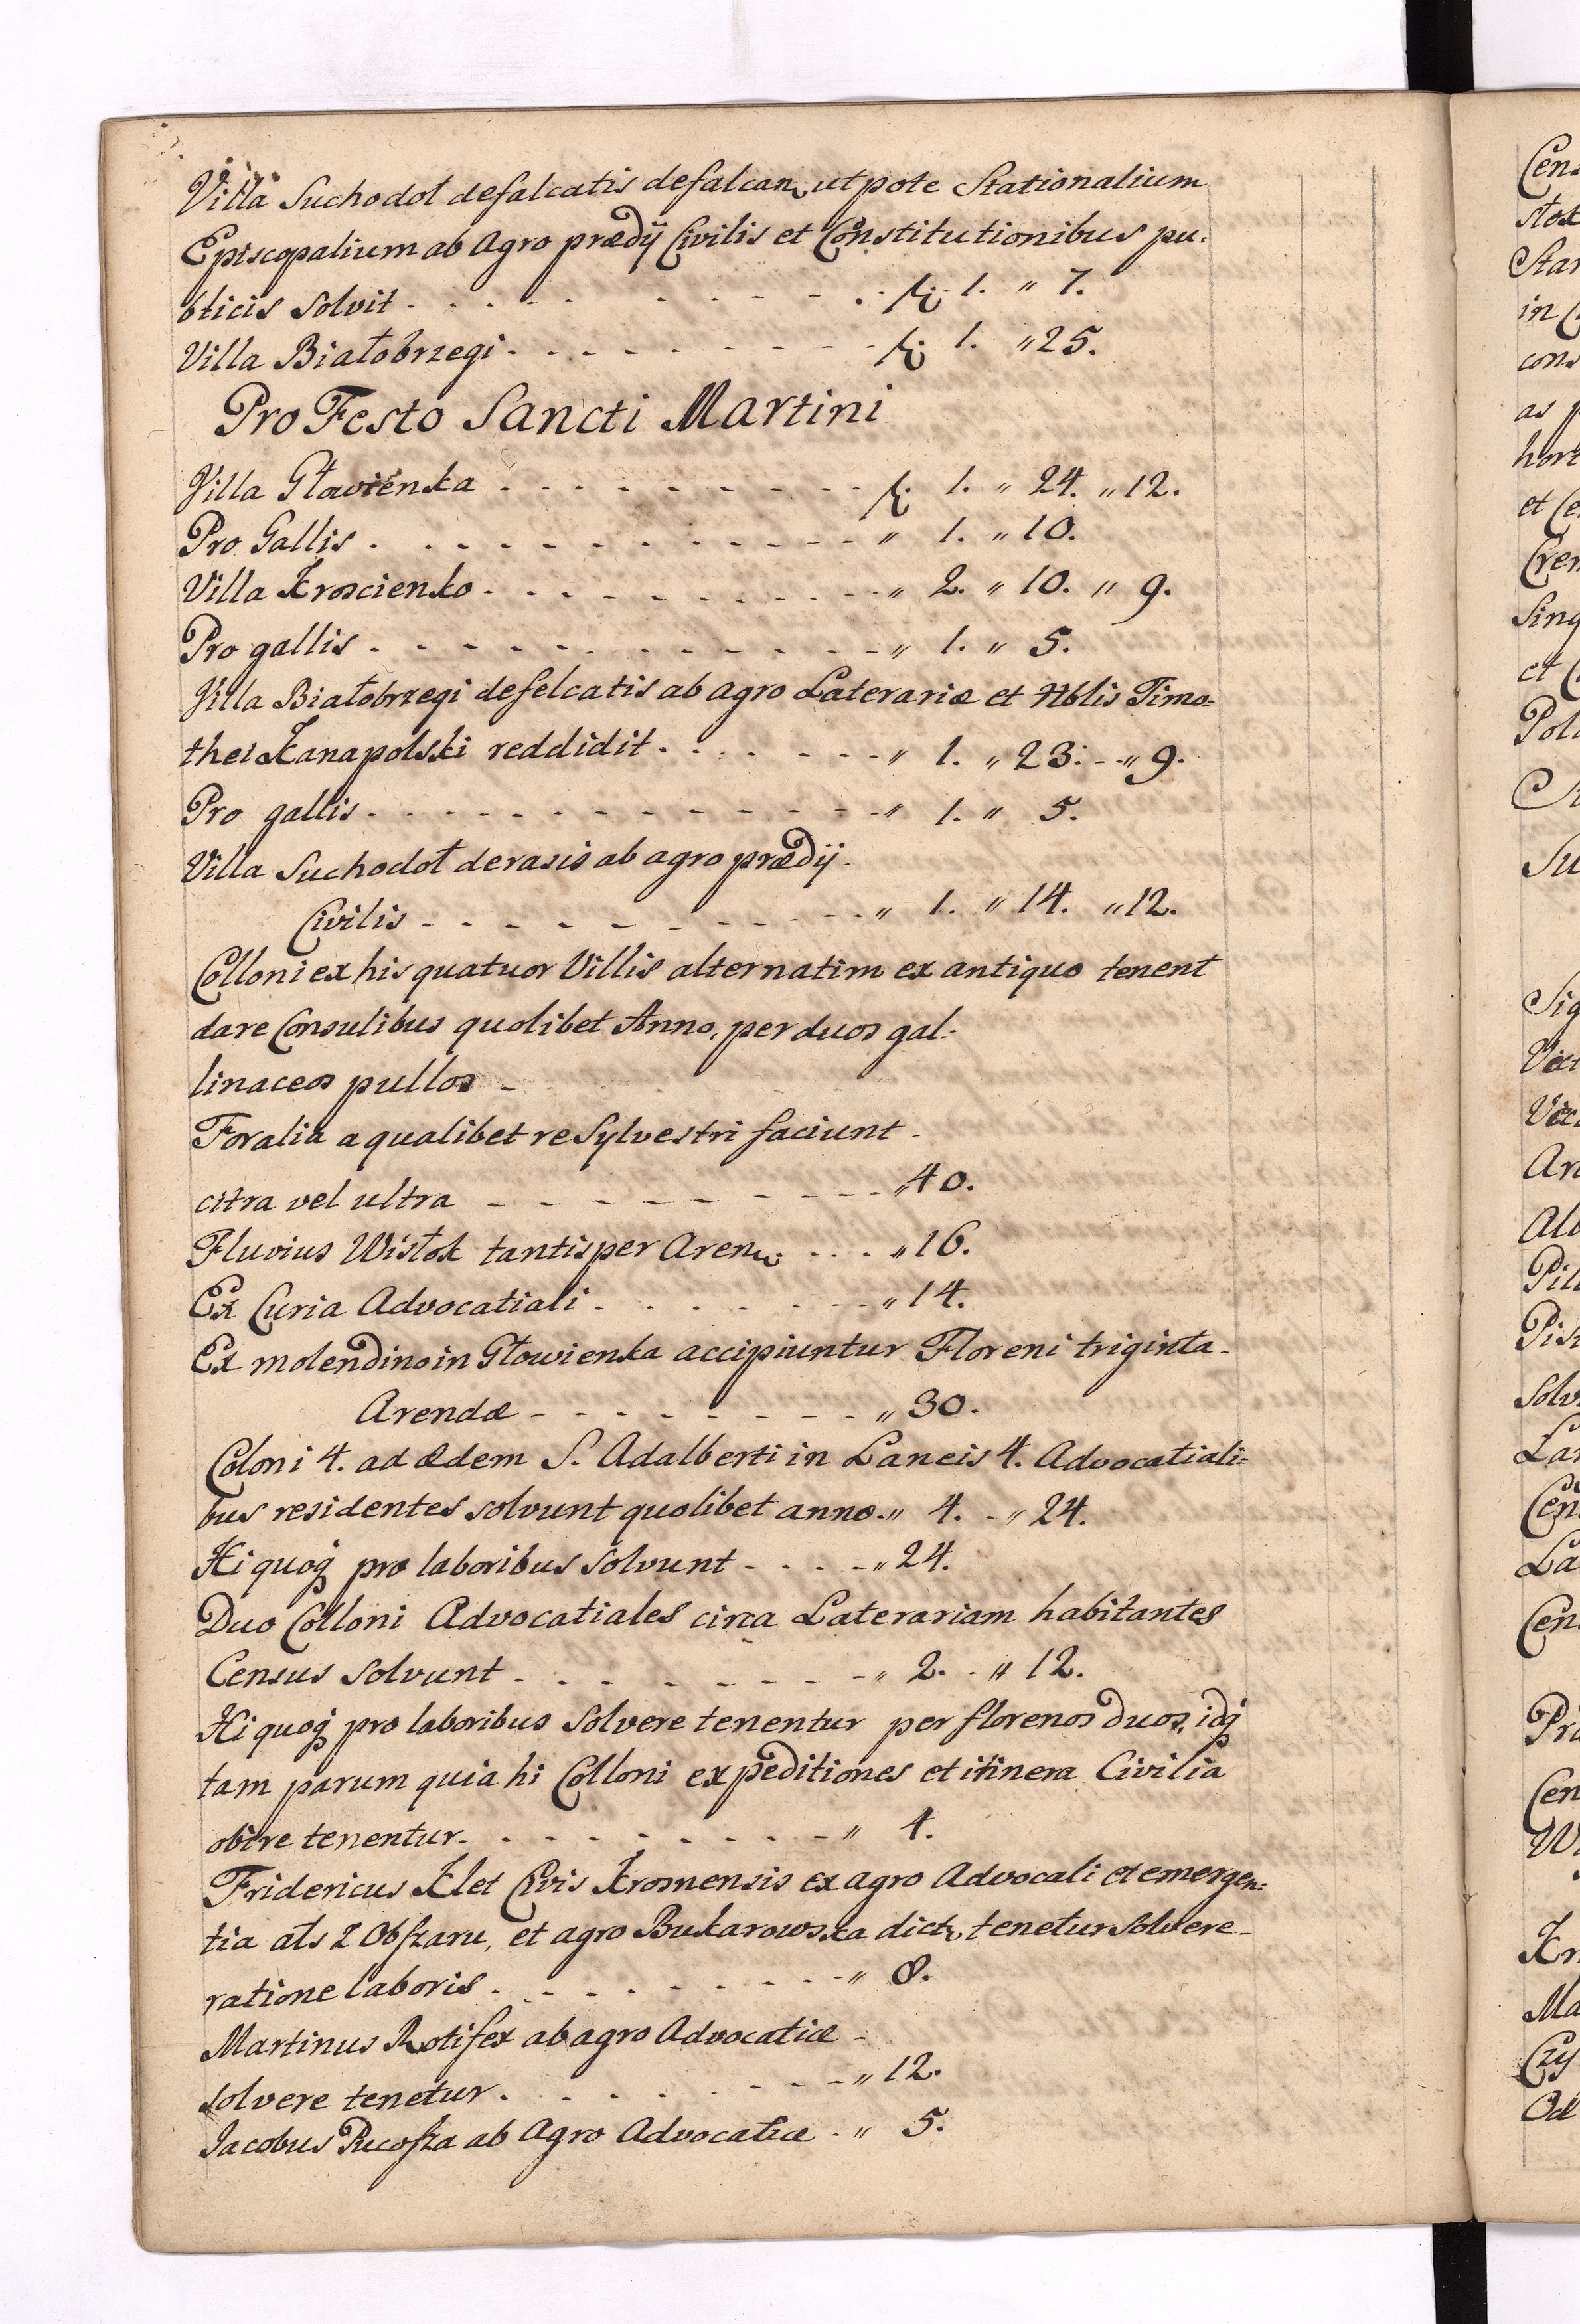 Villa Suchodoł defalcatis defalcan, ut pote Stationalium
Episcopalium ab Agro prædij Civilis et Constitutionibus pu=
blicis solvit . - - - - - - - - - . - 1. „ 7.
Villa Białobrzegi . - - - - - - - - - 1. „ 25.
Pro Festo Sancti Martini
Villa Głowienka - - - - - - - - - 1. „ 24. „ 12.
Pro Gallis . - - - - - - - - - „ 1. „ 10.
Villa Kroscienko - - - - - - - - „ 2. „ 10. „ 9.
Pro gallis . - - - - - - - - - „ 1. „ 5.
Villa Białobrzegi defelcatis ab agro Laterariæ et Nblis Timo=
thei Kanapolski reddidit . - - - - - „ 1. „ 23. - „ 9.
Pro gallis . - - - - - - - - - „ 1. „ 5.
Villa Suchodoł derasis ab agro prædij -
Civilis - - - - - - - - - „ 1. „ 14. „ 12.
Colloni ex his quatuor Villis alternatim ex antiquo tenent
dare Consulibus quolibet Anno, per duos gal-
linaceos pullos -
Foralia a qualibet re Sylvestri faciunt -
citra vel ultra - - - - - - - - „ 40.
Fluvius Wisłok tantisper Aren . - - . „ 16.
Ex Curia Advocatiali . - - - - - - „ 14.
Ex molendino in Głowienka accipiuntur Floreni triginta -
Arendæ - - - - - - - - „ 30.
Coloni 4. ad ædem S. Adalberti in Laneis 4. Advocatiali=
bus residentes solvunt quolibet anno. „ 4. - „ 24.
Hi quoq pro laboribus solvunt - - - - „ 24.
Duo Colloni Advocatiales circa Laterariam habitantes
Census solvunt . - - - - - - - „ 2. - „ 12.
Hi quoq pro laboribus solvere tenentur per florenos duos, idq
tam parum quia hi Colloni expeditiones et itinera Civilia
obire tenentur . - - - - - - - „ 4.
Fridericus Klet Civis Krosnensis ex agro Advocali et emergen=
tia als z Obszaru, et agro Bukarowska dict, tenetur solvere -
ratione laboris . - - - - - - - „ 8.
Martinus Rotifex ab agro Advocatiæ -
solvere tenetur . - - - - - - - „ 12.
Jacobus Pucoszka ab Agro Advocatiæ - „ 5.